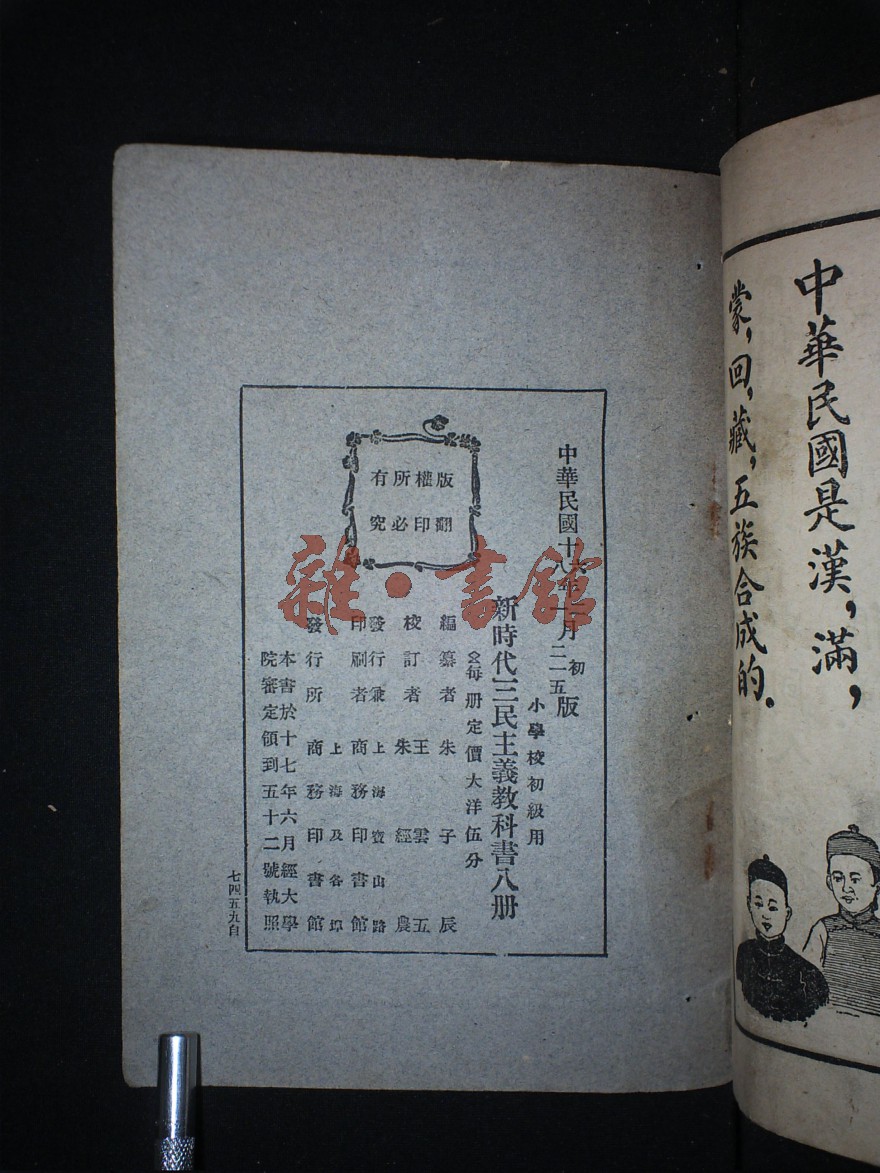 中華民國是漢，滿，
蒙，回，藏，五族合成的．
中華民國十八年一月二一五版
初
小學校初級用
新時代三民主義教科書八册
每册定價大洋伍分
編纂者 朱子辰
校訂者 王雲五
朱經農
發行兼
印刷者
上海寶山路
商務印書館
上海及各埠
發行所 商務印書館
本書於十七年六月經大學
院審定領到五十二號執照
七四五九自
版權所有
翻印必究
雜·書館